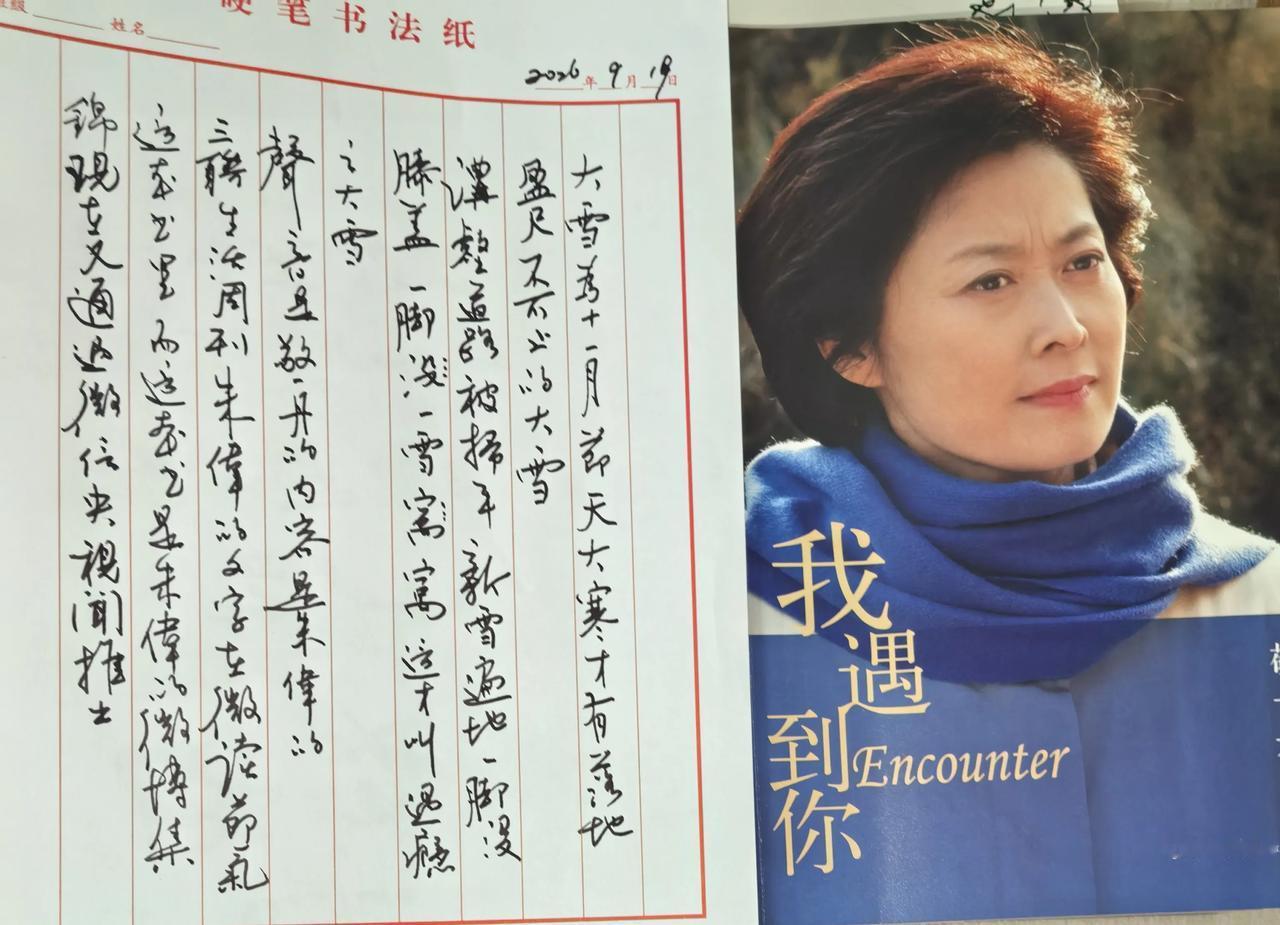 硬笔书法纸
班级 姓名
2026年9月19日
大雪为十一月节天大寒才有落地
盈尺不不止的大雪
沟壑道路被掃平新雪遍地一脚没
膝盖一脚没一雪窝窝这才叫过癮
之大雪
聲音是敬一丹的内容是朱偉的
三聯生活周刊朱偉的文字在微读節氣
这本书里而这本书是朱偉的微博集
錦現在又通过微信央視聞推出
我遇到你
Encounter